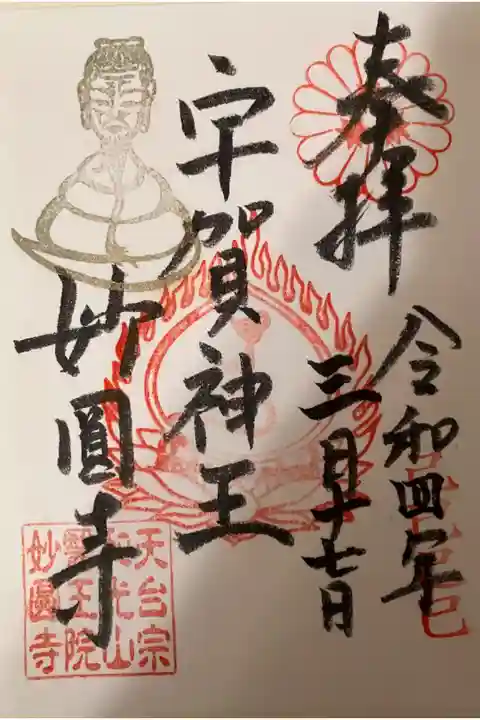 奉拝
令和四年
三月十七日
宇賀神王
妙圓寺
天台宗
光山
醫王院
妙圓寺